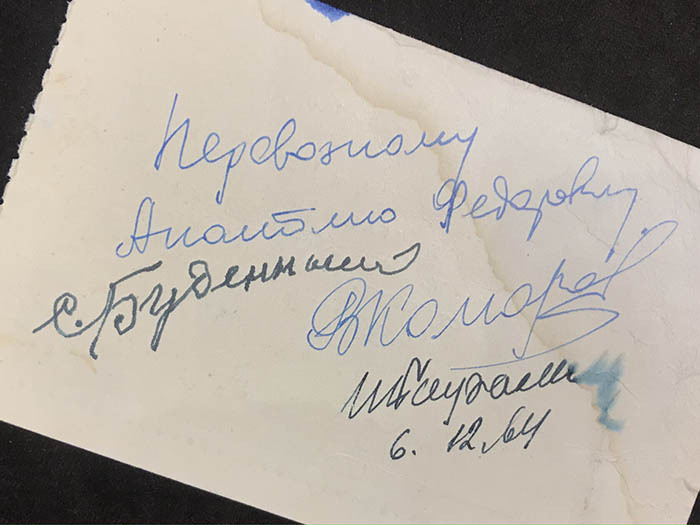 Перевозному
Анатолию Федоровичу
С. Буденный
ВКомаров
6. 12.64